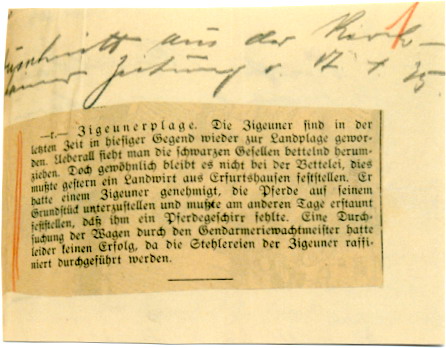 Ausschnitt aus der Kirch-
hainer Zeitung v. 17. X. 25.
—r.— Zigeunerplage. Die Zigeuner sind in der
letzten Zeit in hiesiger Gegend wieder zur Landplage gewor-
den. Ueberall sieht man die schwarzen Gesellen bettelnd herum-
ziehen. Doch gewöhnlich bleibt es nicht bei der Bettelei, dies
mußte gestern ein Landwirt aus Erfurtshausen feststellen. Er
hatte einem Zigeuner genehmigt, die Pferde auf seinem
Grundstück unterzustellen und mußte am anderen Tage erstaunt
feststellen, daß ihm ein Pferdegeschirr fehlte. Eine Durch-
suchung der Wagen durch den Gendarmeriewachtmeister hatte
leider keinen Erfolg, da die Stehlereien der Zigeuner raffi-
niert durchgeführt werden.